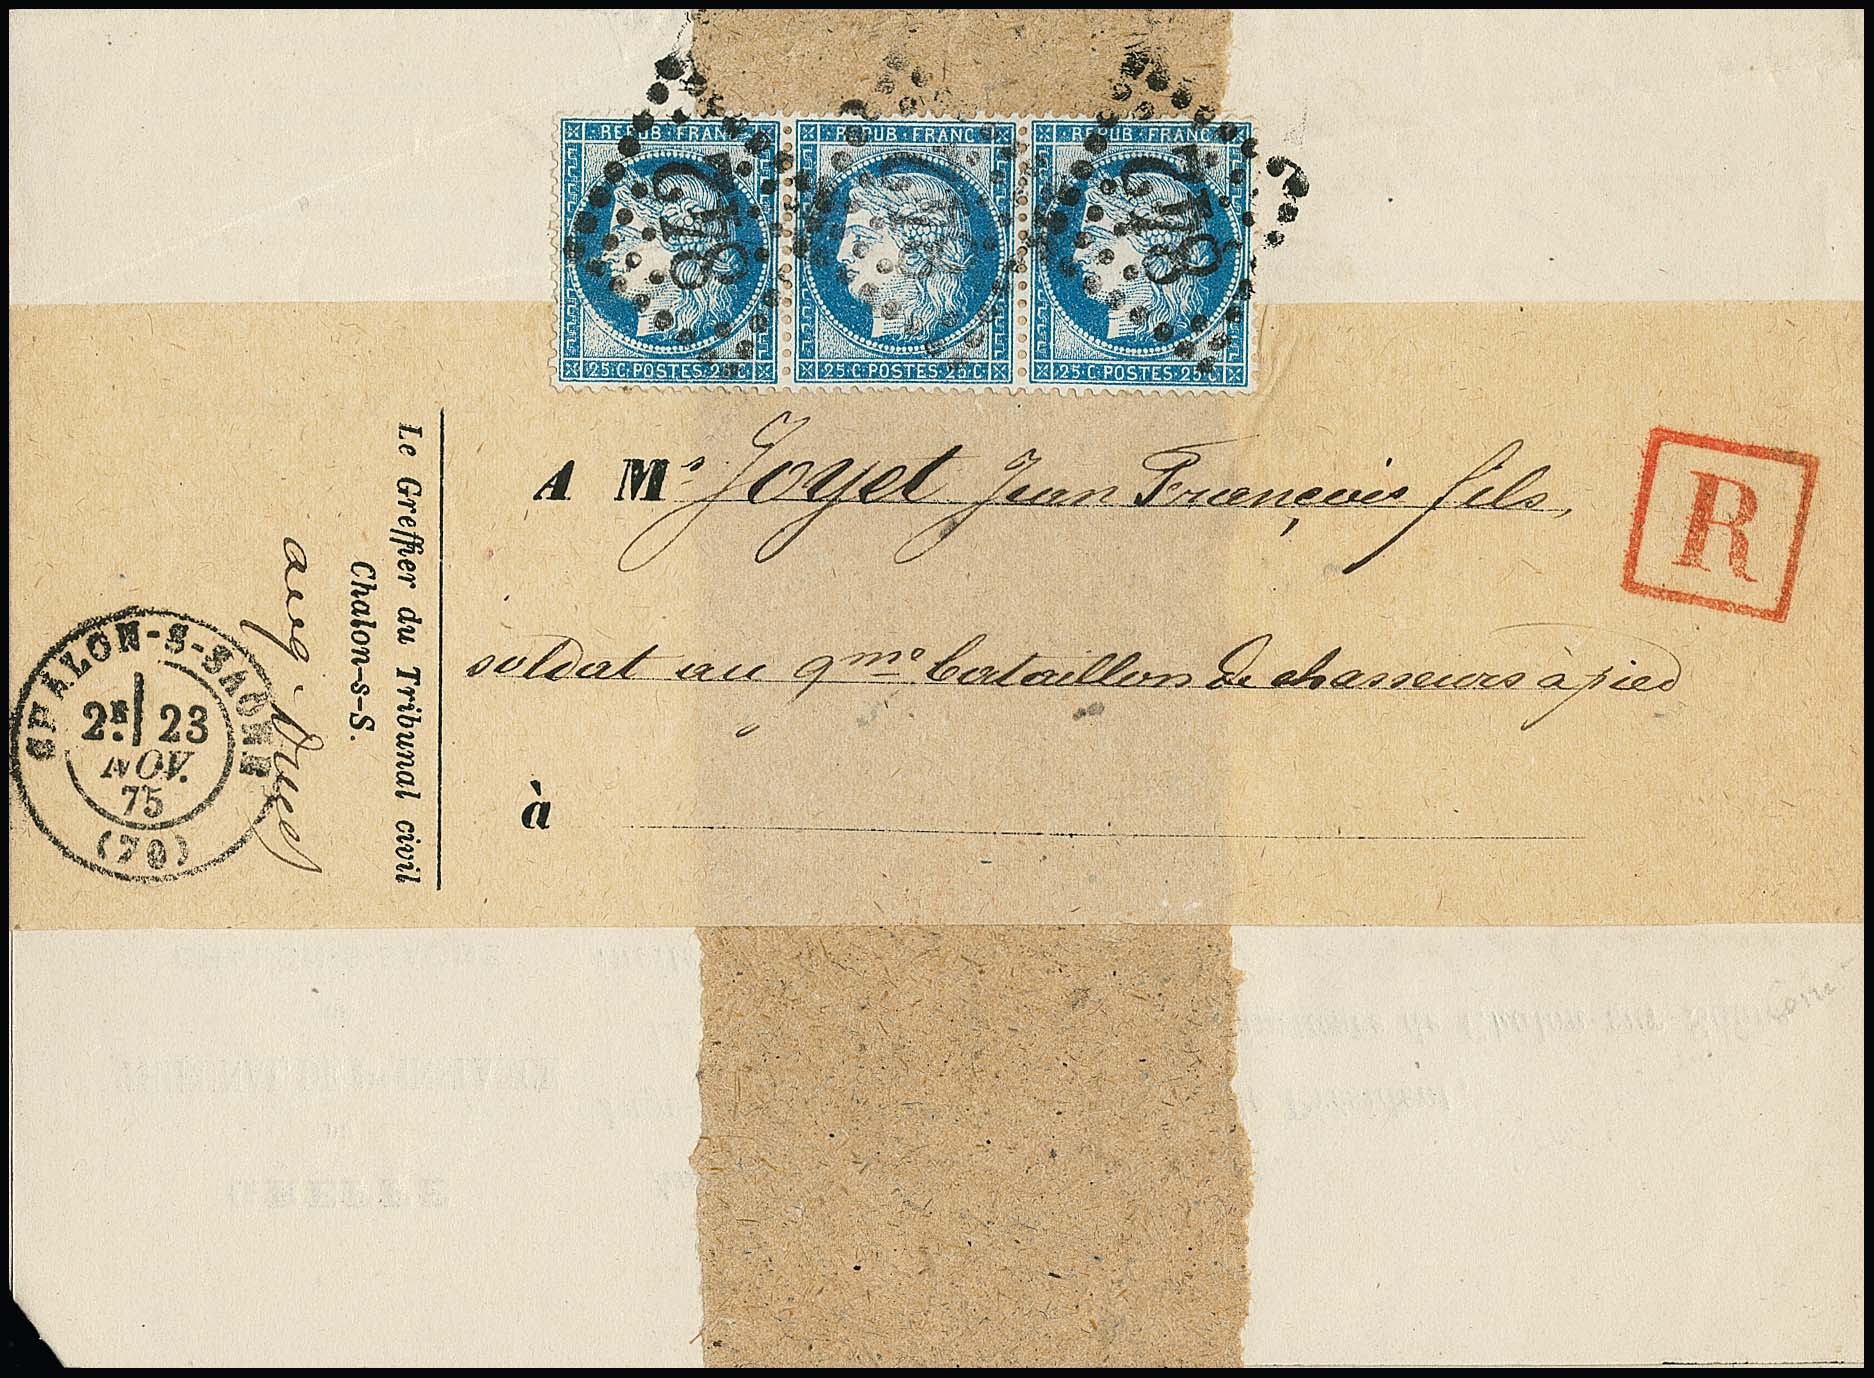 REPUB · FRANC
REPUB · FRANC
REPUB · FRANC
25 · C · POSTES · 25 · C
25 · C · POSTES · 25 · C
25 · C · POSTES · 25 · C
A Mr Joyet Jean François fils,
R
soldat au 9me bataillon de chasseurs à pied
à
Le Greffier du Tribunal civil
Chalon-s-S.
CHALON-S-SAONE
2E 23
NOV.
75
(70)
GREFFE